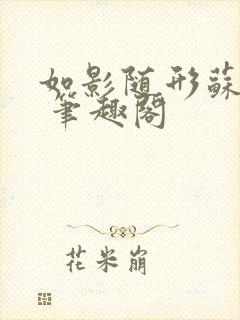 如影随形蘇
笔趣阁
花米崩